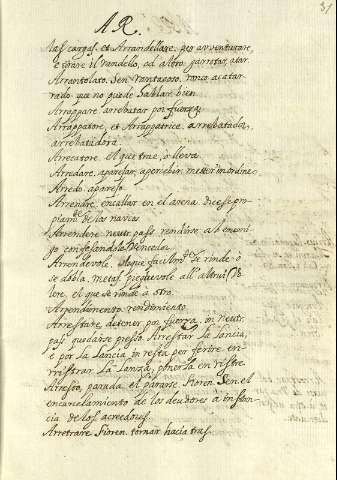 31
AR.
las cargas, et Arrandellare, per avventurare,
e tirare il randello, ed altro, garrotar, atar
Arrantolato. Sen. rantacoso, ronco, acatar
rado, que no puede hablar bien
Arrappare. arrebatar por fuerza
Arrappatore, et Arrappatrice. arrebatador,
arrebatadora
Arrecatore. el que trae, o lleva
Arredare. aparejar, apercebir, metter in ordine
Arredo. aparejo
Arrenare, encallar en el arena. dicese pro-
piam.te de los navios
Arrendere neutr. pass. rendirse a el enemi-
go confesandose vencido
Arrendevole. el que facilm.te se rinde o
se dobla, metaf. pieghevole all' altrui vo-
lere, el que se rinde a otro
Arrendimento. rendimiento
Arrestare, detener por fuerza, in neutr.
pass. quedarse preso, Arrestar la lancia,
e por la lancia in resta per ferire en-
rristrar la lanza, ponerla en ristre
Arresto, parada, el pararse. Fioren. Sen. el
encarcelamiento de los deudores a instan-
cia de los acreedores
Arretrare Fioren. tornar hacia tras